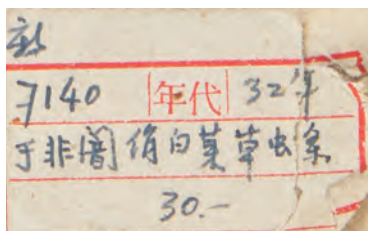 7140 年代 32年
于非闇 绢白菜草虫条
30.—